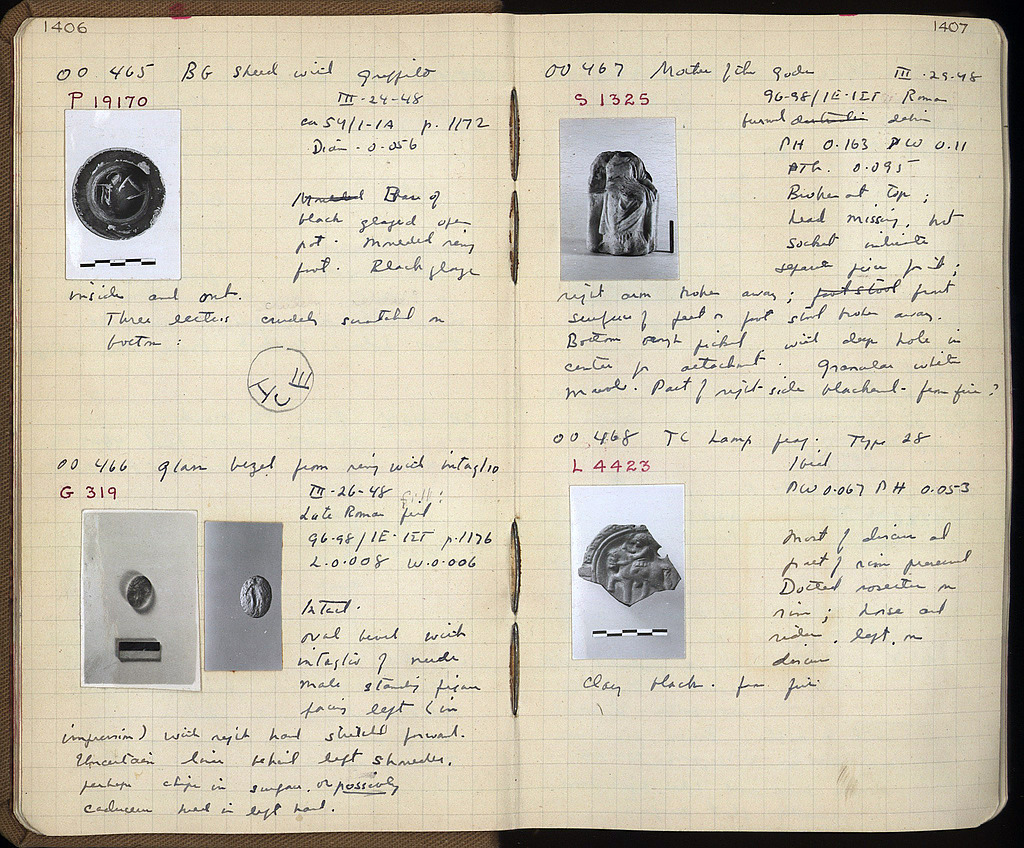 1406
OO 465 BG sherd with graffito
P 19170
III-24-48
ca 54/1-1A p. 1172
Diam. 0.056
Base of
black glazed open
pot. Moulded ring
foot. Black glaze
inside and out.
Three letters crudely scratched on
bottom:
OO 466 Glass bezel from ring with intaglio
G 319
III-26-48
Late Roman fill
96-98/ΙΕ-ΙΣΤ p. 1176
L. 0.008 W. 0.006
Intact.
Oval bezel with
intaglio of nude
male standing figure
facing left (in
impression) with right hand stretched forward.
Uncertain lines behind left shoulder,
perhaps chips in surface, or possibly
caduceus held in left hand.
1407
OO 467 Mother of the gods III-29-48
S 1325
96-98/ΙΕ-ΙΣΤ Roman
debris
PH 0.163 PW 0.11
PTh. 0.095
Broken at top;
head missing, but
socket indicates
separate piece for it;
right arm broken away; footstool front
surface of feet & foot stool broken away.
Bottom rough picked, with deep hole in
center for attachment. Granular white
marble. Part of right side blackened - from fire?
OO 468 TC Lamp frag. Type 28
L 4423
Ibid
PW 0.067 PH 0.053
Most of discus and
part of rim preserved
Dotted rosettes on
rim; horse and
rider, left, on
discus
Clay black. from fire